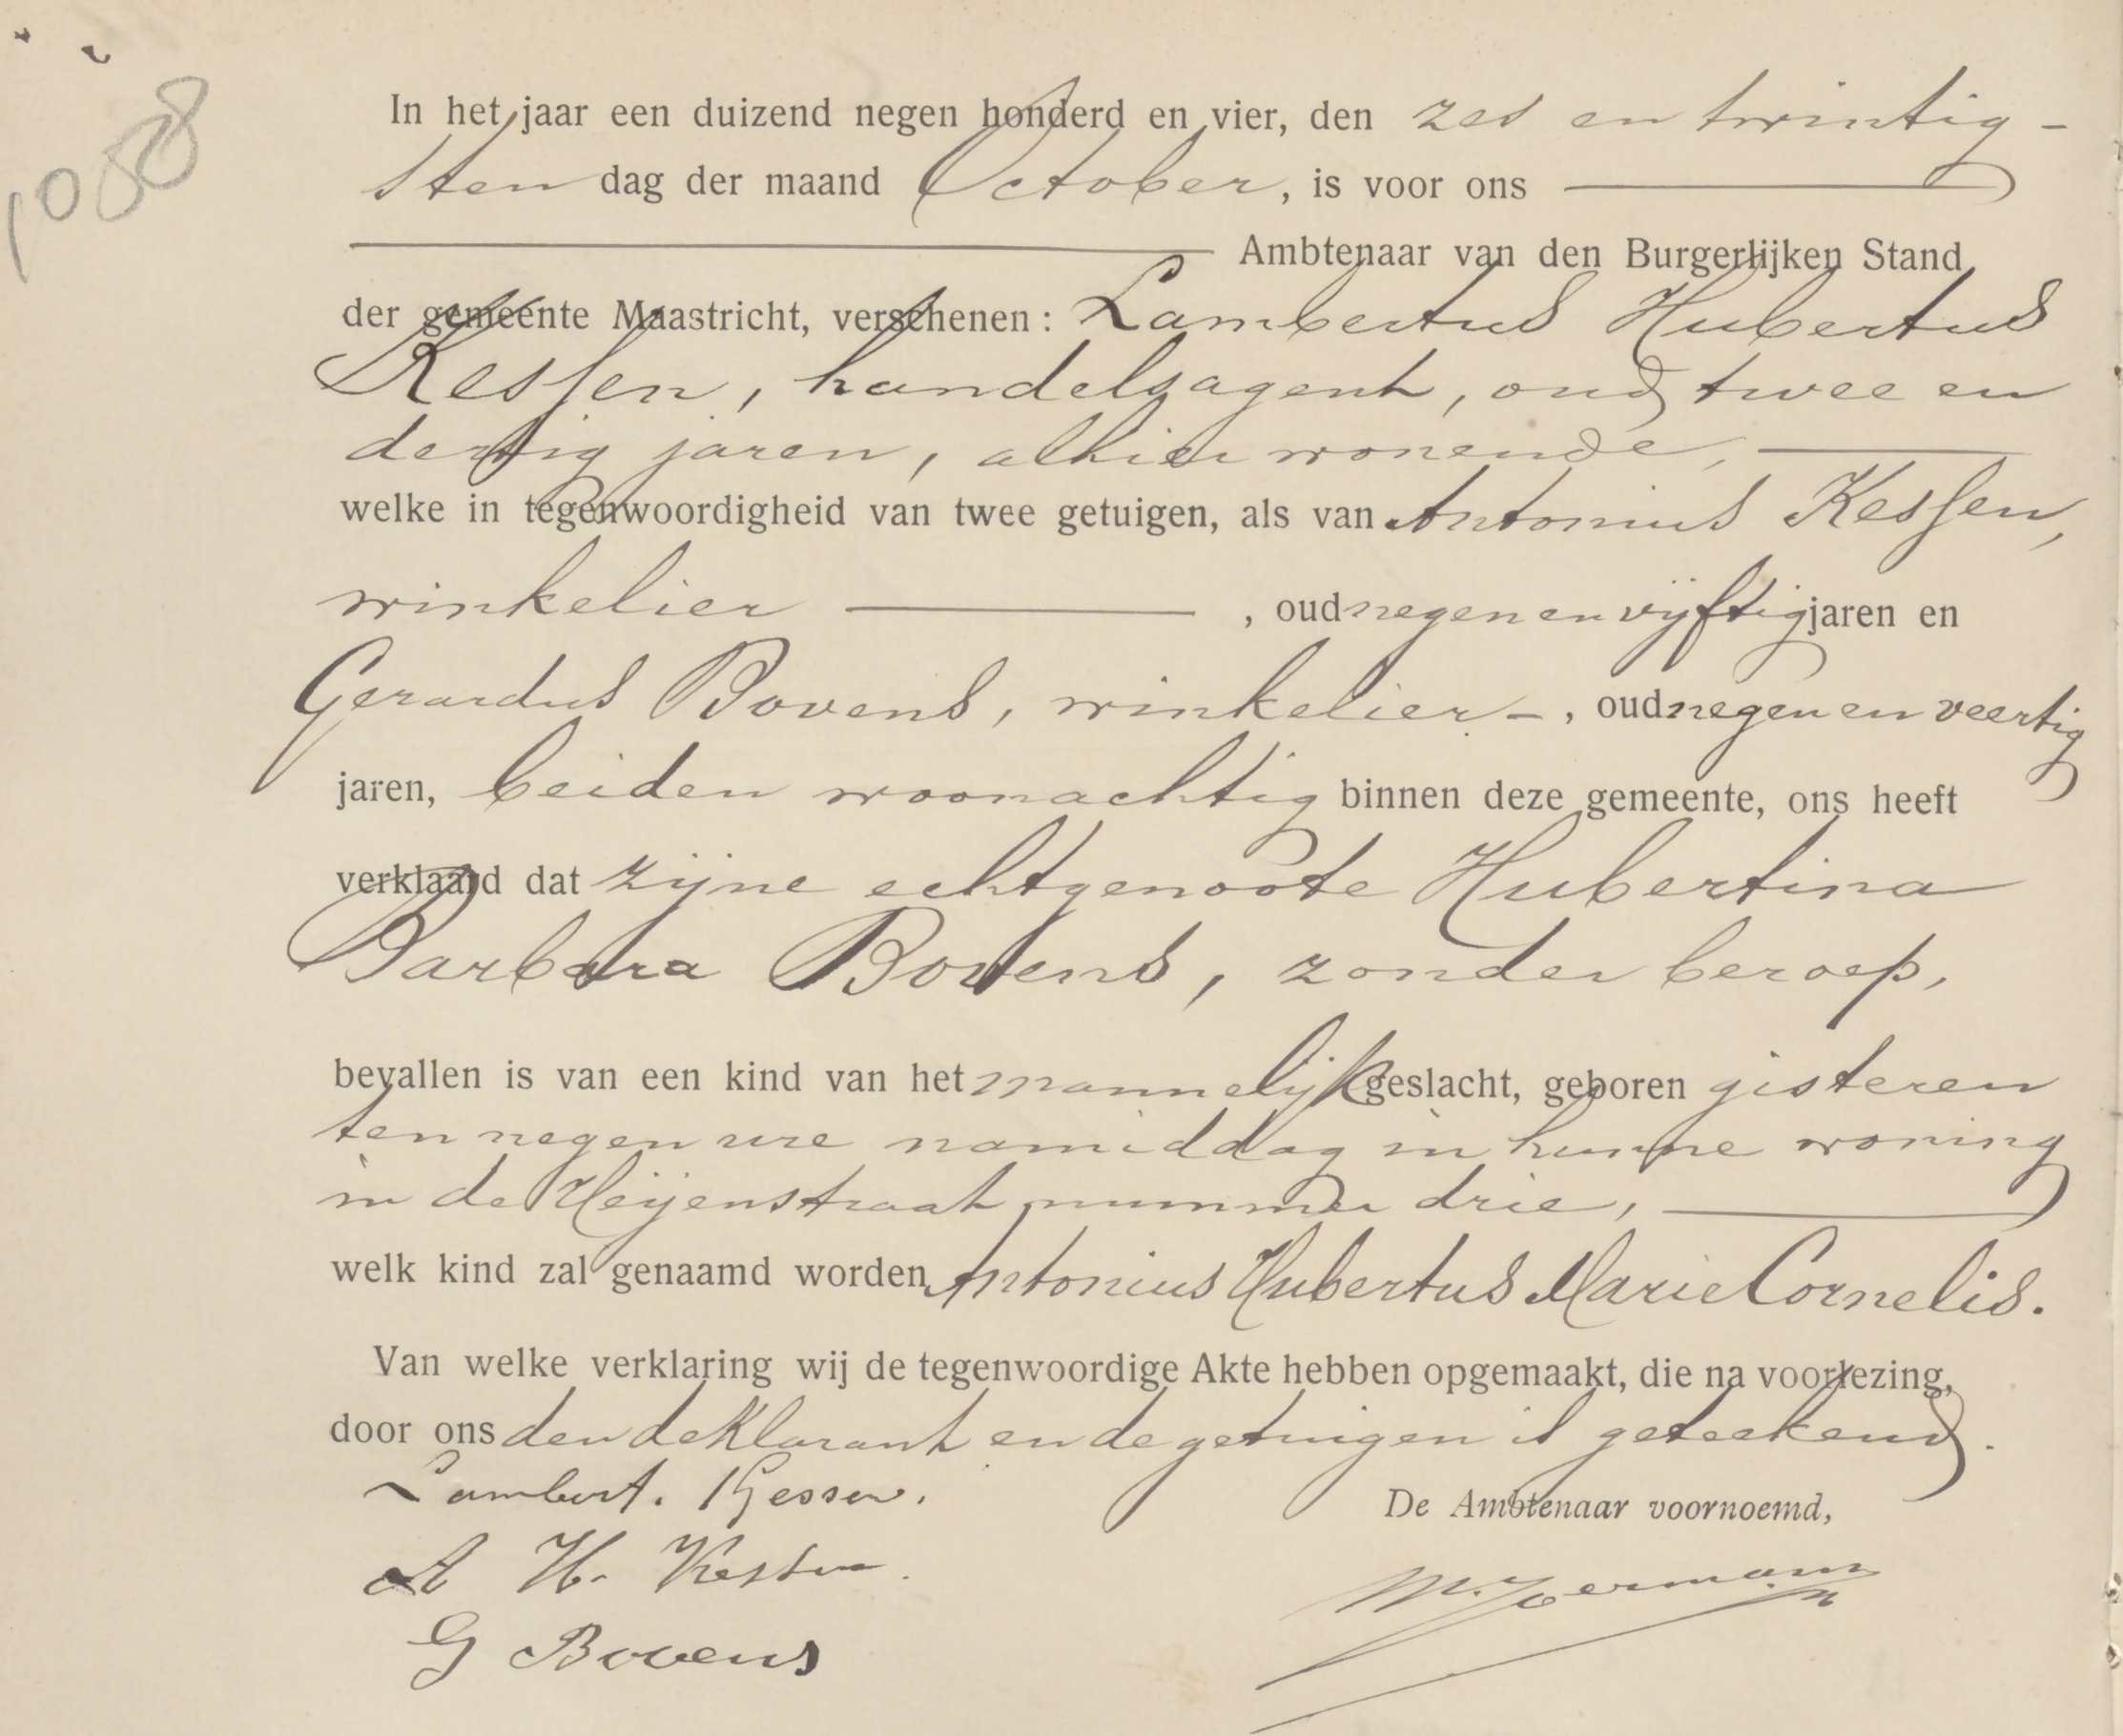 1088
In het jaar een duizend negen honderd en vier, den zes en twintig -
sten dag der maand October, is voor ons
Ambtenaar van den Burgerlijken Stand
der gemeente Maastricht, verschenen: Lambertus Hubertus
Kessen, handelsagent, oud twee en
dertig jaren, alhier wonende,
welke in tegenwoordigheid van twee getuigen, als van Antonius Kessen,
winkelier , oud negen en vijftig jaren en
Gerardus Bovens, winkelier -, oud negen en veertig
jaren, beiden woonachtig binnen deze gemeente, ons heeft
verklaard dat zijne echtgenoote Hubertina
Barbara Bovens, zonder beroep,
bevallen is van een kind van het mannelijk geslacht, geboren gisteren
ten negen ure namiddag in hunne woning
in de nummer drie,
welk kind zal genaamd worden Antonius Hubertus Marie Cornelis.
Van welke verklaring wij de tegenwoordige Akte hebben opgemaakt, die na voorlezing,
door ons den deklarant en de getuigen is geteekend.
Lambert. Kessen.
De Ambtenaar voornoemd,
A H. Kessen.
G Bovens